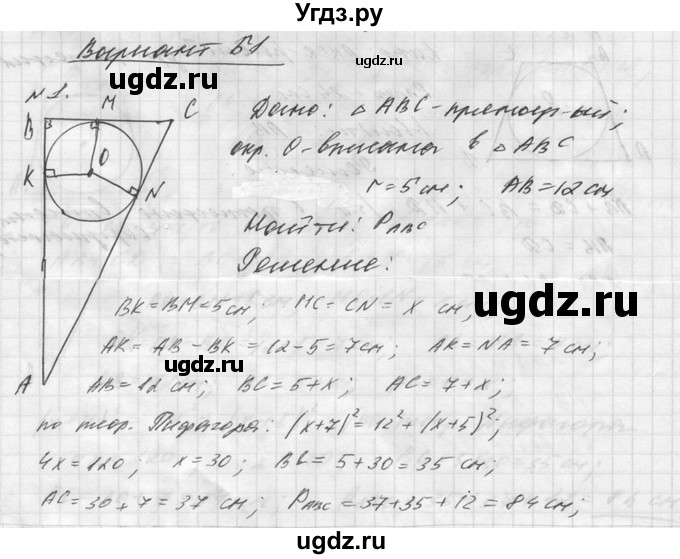 Угдз.ру
Вариант Б1
ugdz.ru
ugdz.ru
№1.
B M C
K O N
A
Дано: △ABC - прямоуг-ый;
окр. O - вписана в △ABC
r = 5 см; AB = 12 см
Найти: P ABC
Решение:
ugdz.ru
BK = BM = 5 см; MC = CN = x см;
AK = AB - BK = 12 - 5 = 7 см; AK = NA = 7 см;
AB = 12 см; BC = 5 + x; AC = 7 + x;
по теор. Пифагора: (x+7)² = 12² + (x+5)²;
4x = 120; x = 30; BC = 5 + 30 = 35 см;
AC = 30 + 7 = 37 см; P ABC = 37 + 35 + 12 = 84 см;
ugdz.ru
ugdz.ru